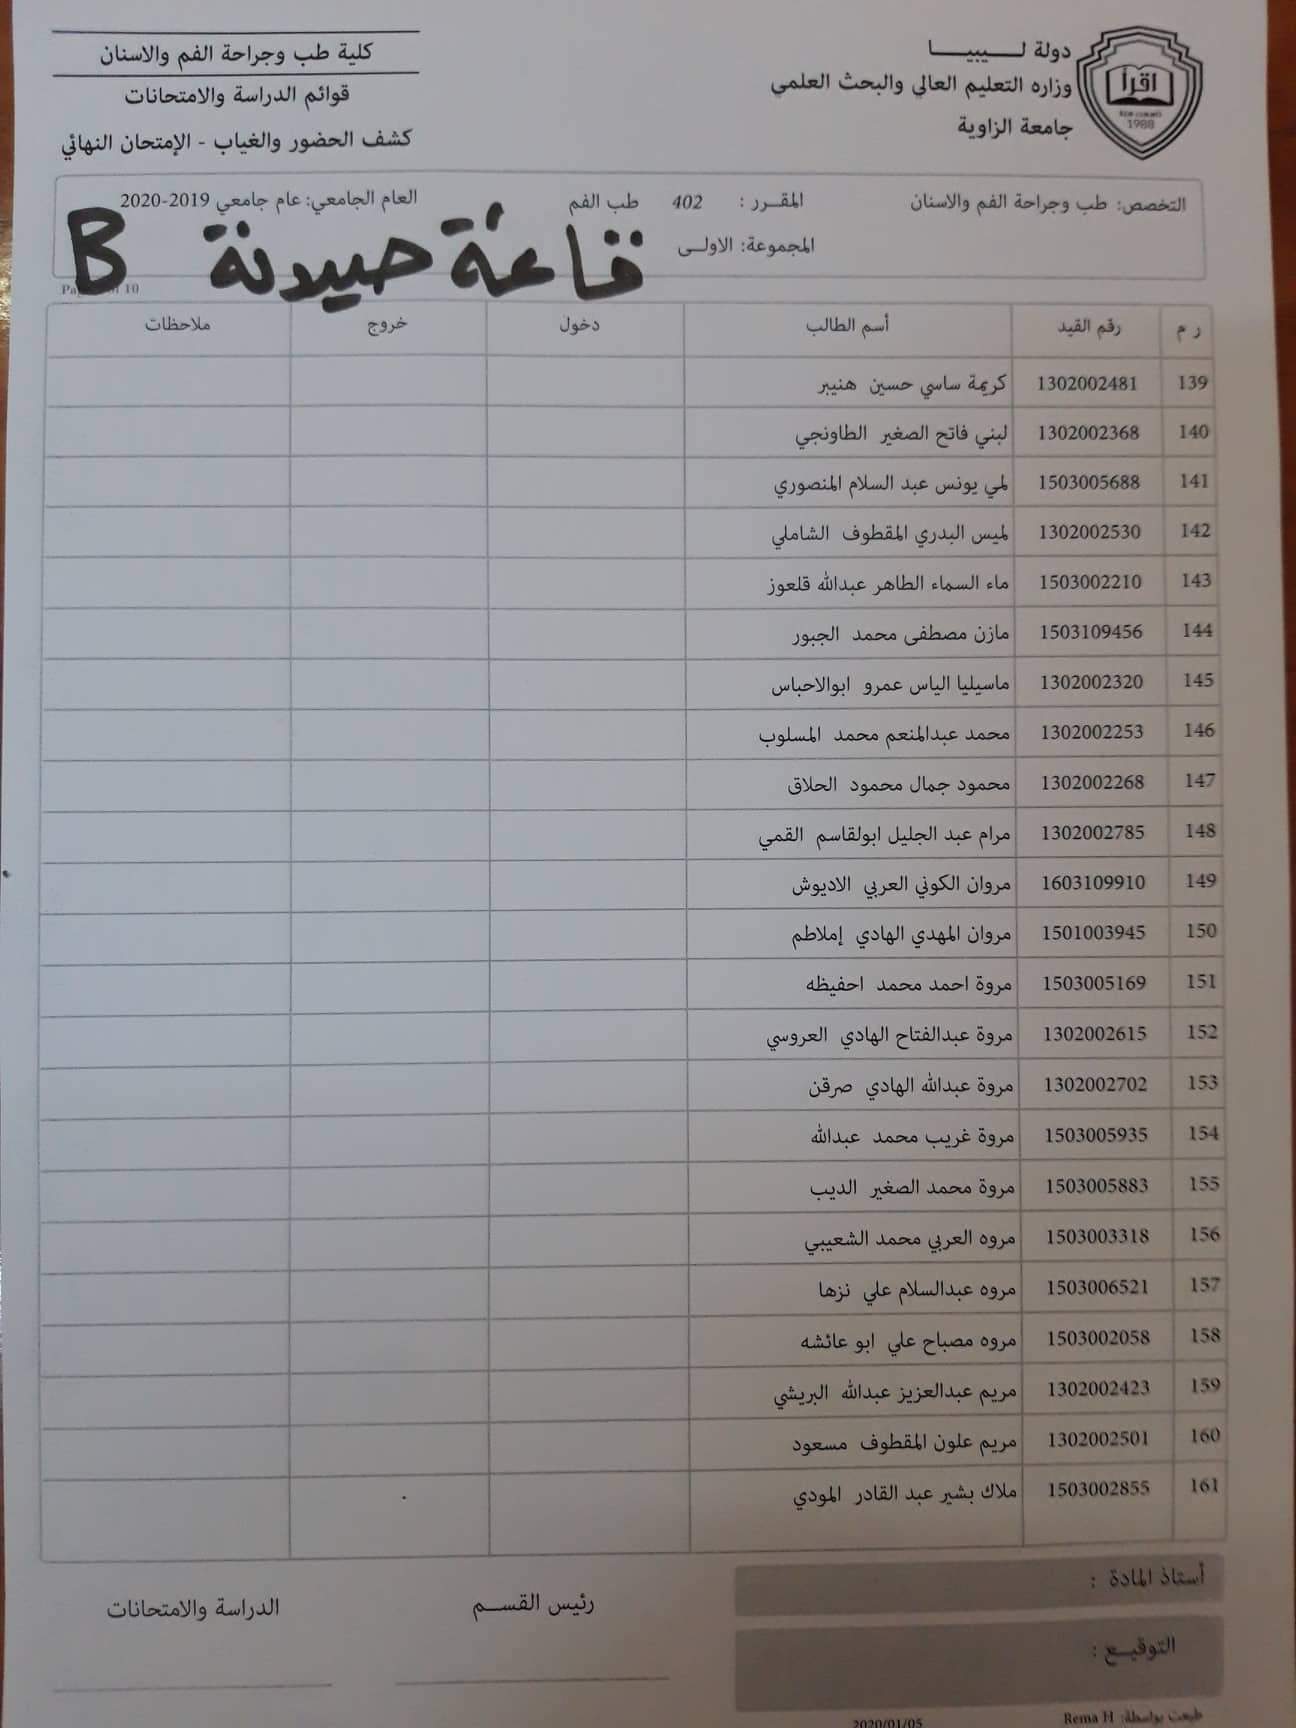 دولة لـــــيبيـــــا
وزاره التعليم العالي والبحث العلمي
جامعة الزاوية
اقرأ
1988
كلية طب وجراحة الفم والاسنان
قوائم الدراسة والامتحانات
كشف الحضور والغياب - الإمتحان النهائي
التخصص: طب وجراحة الفم والاسنان المقـــرر : 402 طب الفم العام الجامعي: عام جامعي 2019-2020
المجموعة: الاولـــى
قاعة صيدنة B
10
ر م رقم القيد أسم الطالب دخول خروج ملاحظات
139 1302002481 كريمة ساسي حسين هنيبر
140 1302002368 لبني فاتح الصغير الطاونجي
141 1503005688 لمي يونس عبد السلام المنصوري
142 1302002530 لميس البدري المقطوف الشاملي
143 1503002210 ماء السماء الطاهر عبدالله قلعوز
144 1503109456 مازن مصطفى محمد الجبور
145 1302002320 ماسيليا الياس عمرو ابوالاحباس
146 1302002253 محمد عبدالمنعم محمد المسلوب
147 1302002268 محمود جمال محمود الحلاق
148 1302002785 مرام عبد الجليل ابولقاسم القمي
149 1603109910 مروان الكوني العربي الاديوش
150 1501003945 مروان المهدي الهادي إملاطم
151 1503005169 مروة احمد محمد احفيظه
152 1302002615 مروة عبدالفتاح الهادي العروسي
153 1302002702 مروة عبدالله الهادي صرقن
154 1503005935 مروة غريب محمد عبدالله
155 1503005883 مروة محمد الصغير الديب
156 1503003318 مروه العربي محمد الشعيبي
157 1503006521 مروه عبدالسلام علي نزها
158 1503002058 مروه مصباح علي ابو عائشه
159 1302002423 مريم عبدالعزيز عبدالله البريشي
160 1302002501 مريم علون المقطوف مسعود
161 1503002855 ملاك بشير عبد القادر المودي
أستاذ المادة : رئيس القســـم الدراسة والامتحانات
التوقيـــع :
طبعت بواسطة: Rema H 2020/01/05